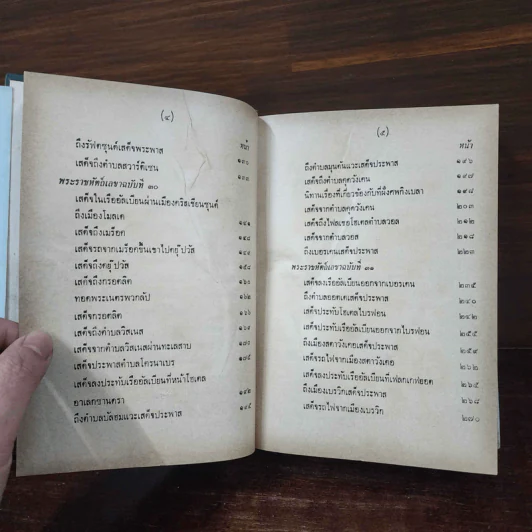 (๔)
หน้า
ถึงรัฟตซุนด์เสด็จพระพาส
เสด็จถึงตำบลสวาร์ติเซน
พระราชหัตถ์เลขาฉบับที่ ๓๐
เสด็จในเรืออัลเบียนผ่านเมืองคริสเชียนซุนด์
ถึงเมืองโมลเด
เสด็จถึงเมร็อค ๑๔๘
เสด็จรถจากเมร็อคขึ้นเขาไปคยู๊ปวัส
เสด็จถึงคยู๊ปวัส ๑๕๐
เสด็จถึงกรอดลิต
ทอดพระเนตรพวกลัป ๑๖๒
เสด็จกรอดลิต ๑๖๖
เสด็จถึงตำบลวิสเนส
เสด็จจากตำบลวิสเนสผ่านทะเลสาบ ๑๗๐
เสด็จประพาสตำบลโครนาเบร
เสด็จลงประทับเรืออัลเบียนที่หน้าโฮเตล
อาเลกซานดรา ๑๘๒
ถึงตำบลบัลฮมแวะเสด็จประพาส ๑๘๕
(๕)
หน้า
ถึงตำบลมุนดันแวะเสด็จประพาส ๑๙๖
เสด็จถึงตำบลคูดวังเคน ๑๙๗
นิทานเรื่องที่เกี่ยวข้องกับที่ฝั่งศพกิงเบลา ๑๙๘
เสด็จจากตำบลคูดวังเคน ๒๐๓
เสด็จถึงไฟลเชอโฮเตลตำบลวอส ๒๑๒
เสด็จจากตำบลวอส ๒๑๘
ถึงเบอรเคนเสด็จประพาส ๒๒๓
พระราชหัตถ์เลขาฉบับที่ ๓๑
เสด็จลงเรืออัลเบียนออกจากเบอรเคน ๒๓๕
ถึงตำบลออดเดเสด็จประพาส ๒๔๐
เสด็จประทับโฮเตลไบรฟอน
เสด็จประทับเรืออัลเบียนออกจากไบรฟอน ๒๕๕
ถึงเมืองสตาวังเคอเสด็จประพาส ๒๕๙
เสด็จรถไฟจากเมืองสตาวังเคอ ๒๖๒
เสด็จลงประทับเรืออัลเบียนที่เฟลกเกฟออด ๒๖๕
ถึงเมืองเบรวิกเสด็จประพาส ๒๖๘
เสด็จรถไฟจากเมืองเบรวิก ๒๗๐